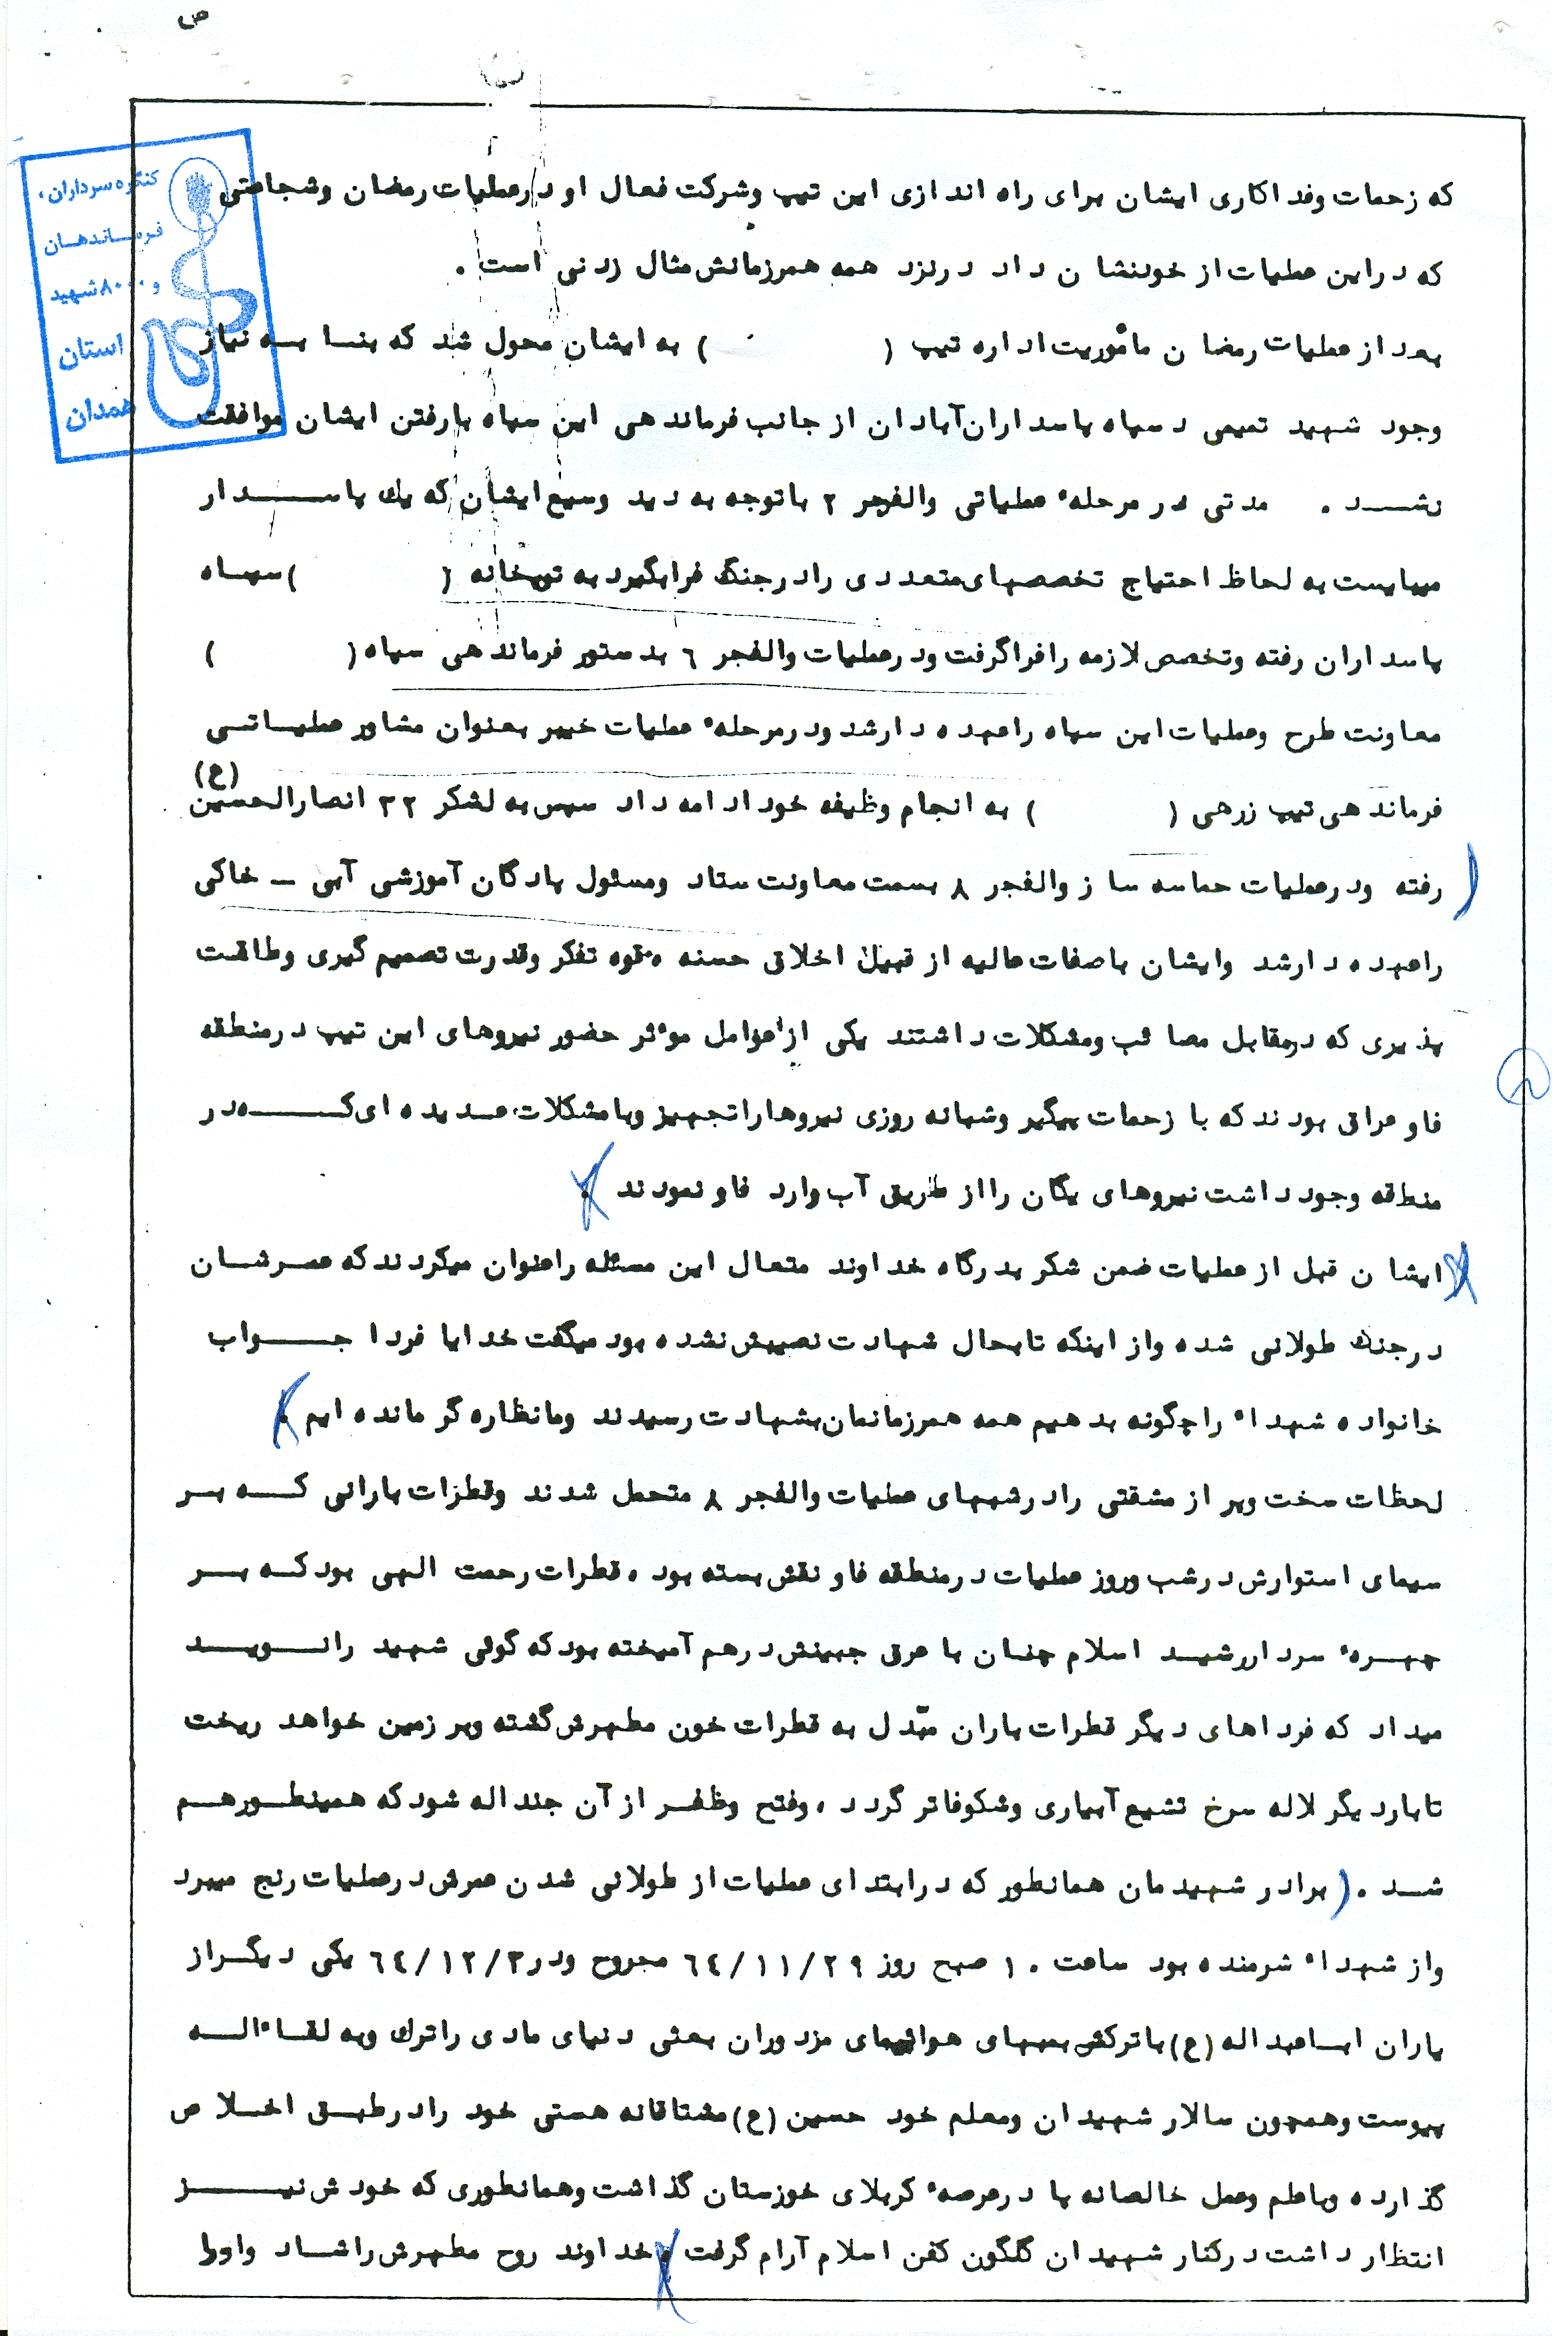 ص
کنگره سرداران،
فرماندهان
و ۸۰۰۰ شهید
استان
همدان
که زحمات وفداکاری ایشان برای راه اندازی این تیپ وشرکت فعال او درعملیات رمضان وشجاعتی
که دراین عملیات از خودنشان داد درنزد همه همرزمانش مثال زدنی است .
بعد از عملیات رمضان مأموریت اداره تیپ (            ) به ایشان محول شد که بنا به نیاز
وجود شهید تمیمی دسپاه پاسداران آبادان از جانب فرماندهی این سپاه بارفتن ایشان موافقت
نشد .   مدتی در مرحلهٔ عملیاتی والفجر ۲ باتوجه به دید وسیع ایشان که یک پاسدار
میبایست به لحاظ احتیاج تخصصهای متعددی رادرجنگ فرابگیرد به توپخانه (            ) سپاه
پاسداران رفته وتخصص لازمه رافراگرفت ودرعملیات والفجر ٦ بدستور فرماندهی سپاه (            )
معاونت طرح وعملیات این سپاه راعهده دارشد ودرمرحلهٔ عملیات خیبر بعنوان مشاور عملیاتی
فرماندهی تیپ زرهی (            ) به انجام وظیفه خود ادامه داد سپس به لشکر ۳۲ انصارالحسین (ع)
( رفته ودرعملیات حماسه ساز والفجر ۸ بسمت معاونت ستاد ومسئول پادگان آموزشی آبی – خاکی
راعهده دارشد وایشان باصفات عالیه از قبیل اخلاق حسنه ، قوه تفکر وقدرت تصمیم گیری وطاقت
پذیری که درمقابل مصائب ومشکلات داشتند یکی ازعوامل موٴثر حضور نیروهای این تیپ درمنطقه
فاو عراق بودند که با زحمات پیگیر وشبانه روزی نیروهاراتجهیز وبامشکلات عدیده ای که در
منطقه وجود داشت نیروهای یگان رااز طریق آب وارد فاو نمودند .
ایشان قبل از عملیات ضمن شکر بدرگاه خداوند متعال این مسئله راعنوان میکردند که عمرشان
درجنگ طولانی شده واز اینکه تابحال شهادت نصیبش نشده بود میگفت خدایا فردا جواب
خانواده شهداء راچگونه بدهیم همه همرزمانمان بشهادت رسیدند ومانظاره گر مانده ایم .
لحظات سخت وپر از مشقتی رادرشبهای عملیات والفجر ۸ متحمل شدند وقطرات بارانی که بر
سیمای استوارش درشب وروز عملیات درمنطقه فاو نقش بسته بود ، قطرات رحمت الهی بود که بر
چهرهٔ سرداررشید اسلام چنان با عرق جبینش درهم آمیخته بود که گوئی شهید رانوید
میداد که فرداهای دیگر قطرات باران مبدّل به قطرات خون مطهرش گشته وبر زمین خواهد ریخت
تابارد یگر لاله سرخ تشیع آبیاری وشکوفاتر گردد ، وفتح وظفر از آن جنداله شود که همینطورهم
شد . ( برادر شهیدمان همانطور که درابتدای عملیات از طولانی شدن عمرش درعملیات رنج میبرد
واز شهداء شرمنده بود ساعت ۱۰ صبح روز ٦٤/۱۱/۲۹ مجروح ودر ٦٤/۱۲/۳ یکی دیگراز
یاران اباعبداله (ع) باترکش بمبهای هواپیمای مزدوران بعثی دنیای مادی راترک وبه لقاءاله
پیوست وهمچون سالار شهیدان ومعلم خود حسین (ع) مشتاقانه هستی خود رادرطبق اخلاص
گذارده وباعلم وعمل خالصانه پا درعرصهٔ کربلای خوزستان گذاشت وهمانطوری که خودش نیز
انتظار داشت درکنار شهیدان گلگون کفن اسلام آرام گرفت ، خداوند روح مطهرش راشاد واورا
۲